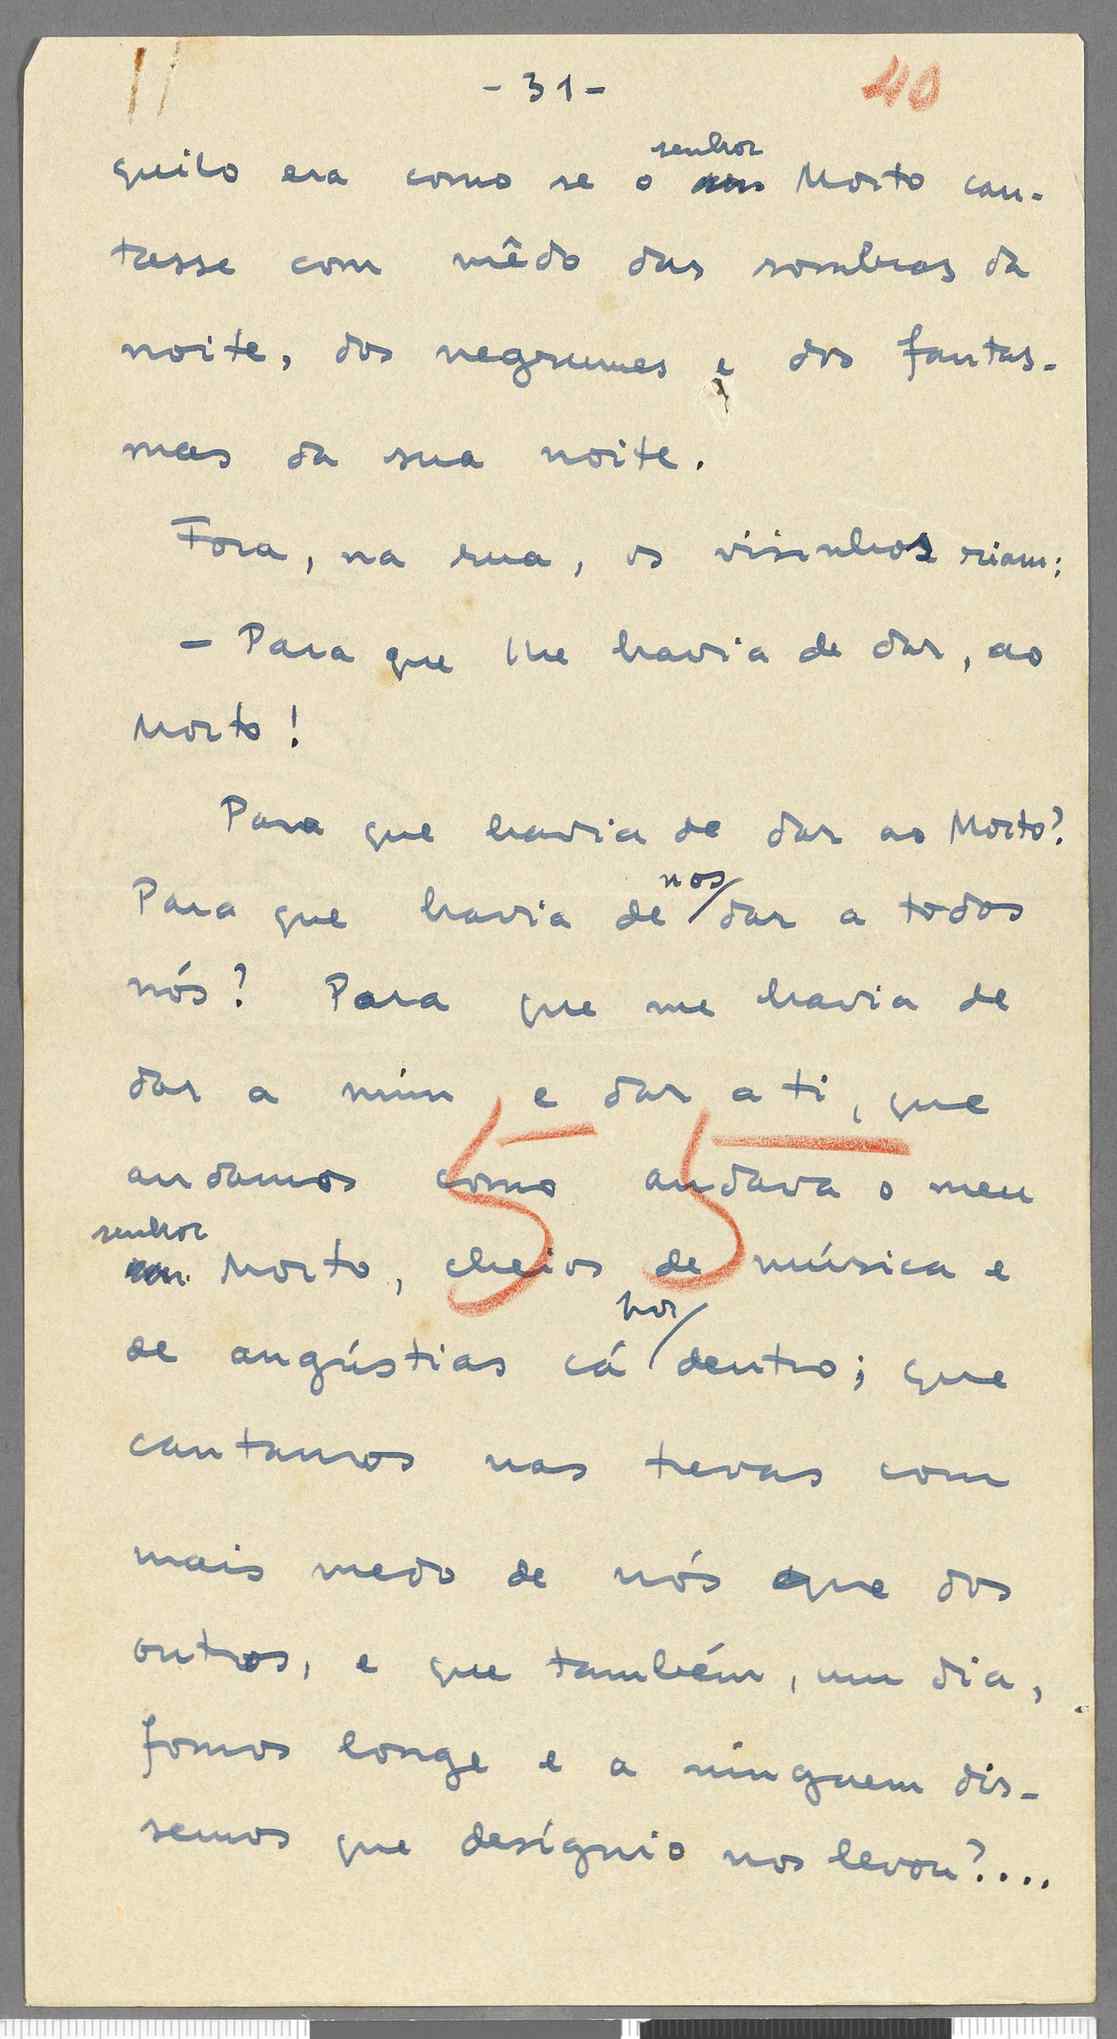 - 31 -
40
senhor
quilo era como se o Morto can-
tasse com mêdo das sombras da
noite, dos negrumes e dos fantas-
mas da sua noite.
Fora, na rua, os visinhos riam:
- Para que lhe havia de dar, ao
Morto!
Para que havia de dar ao Morto?
nos
Para que havia de dar a todos
nós? Para que me havia de
dar a mim e dar a ti, que
andamos como andava o meu
senhor
Morto, cheios de música e
por
de angústias cá dentro; que
cantamos nas trevas com
mais medo de nós que dos
outros, e que também, um dia,
fomos longe e a ninguem dis-
semos que desígnio nos levou?....
55